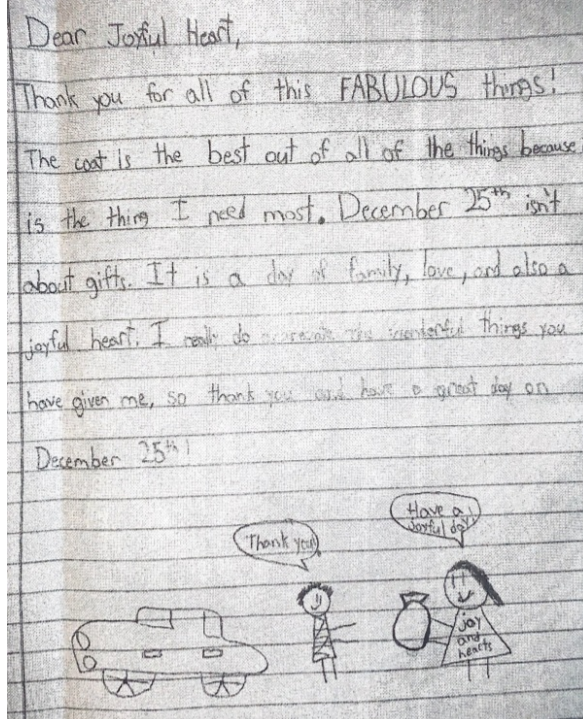 Dear Joyful Heart,
Thank you for all of this FABULOUS things!
The coat is the best out of all of the things because
is the thing I need most. December 25th isn't
about gifts. It is a day of family, love, and also a
joyful heart. I really do the wonderful things you
have given me, so thank you and have a great day on
December 25th!
Have a
Joyful day!
Thank you!
joy
and
hearts